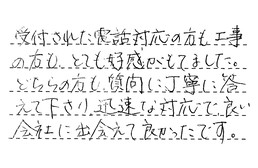 受付された電話対応の方も工事
の方も、とても好感がもてました。
どちらの方も質向に丁寧に答
えて下さり、迅速な対応で良い
会社に出会えて良かったです。